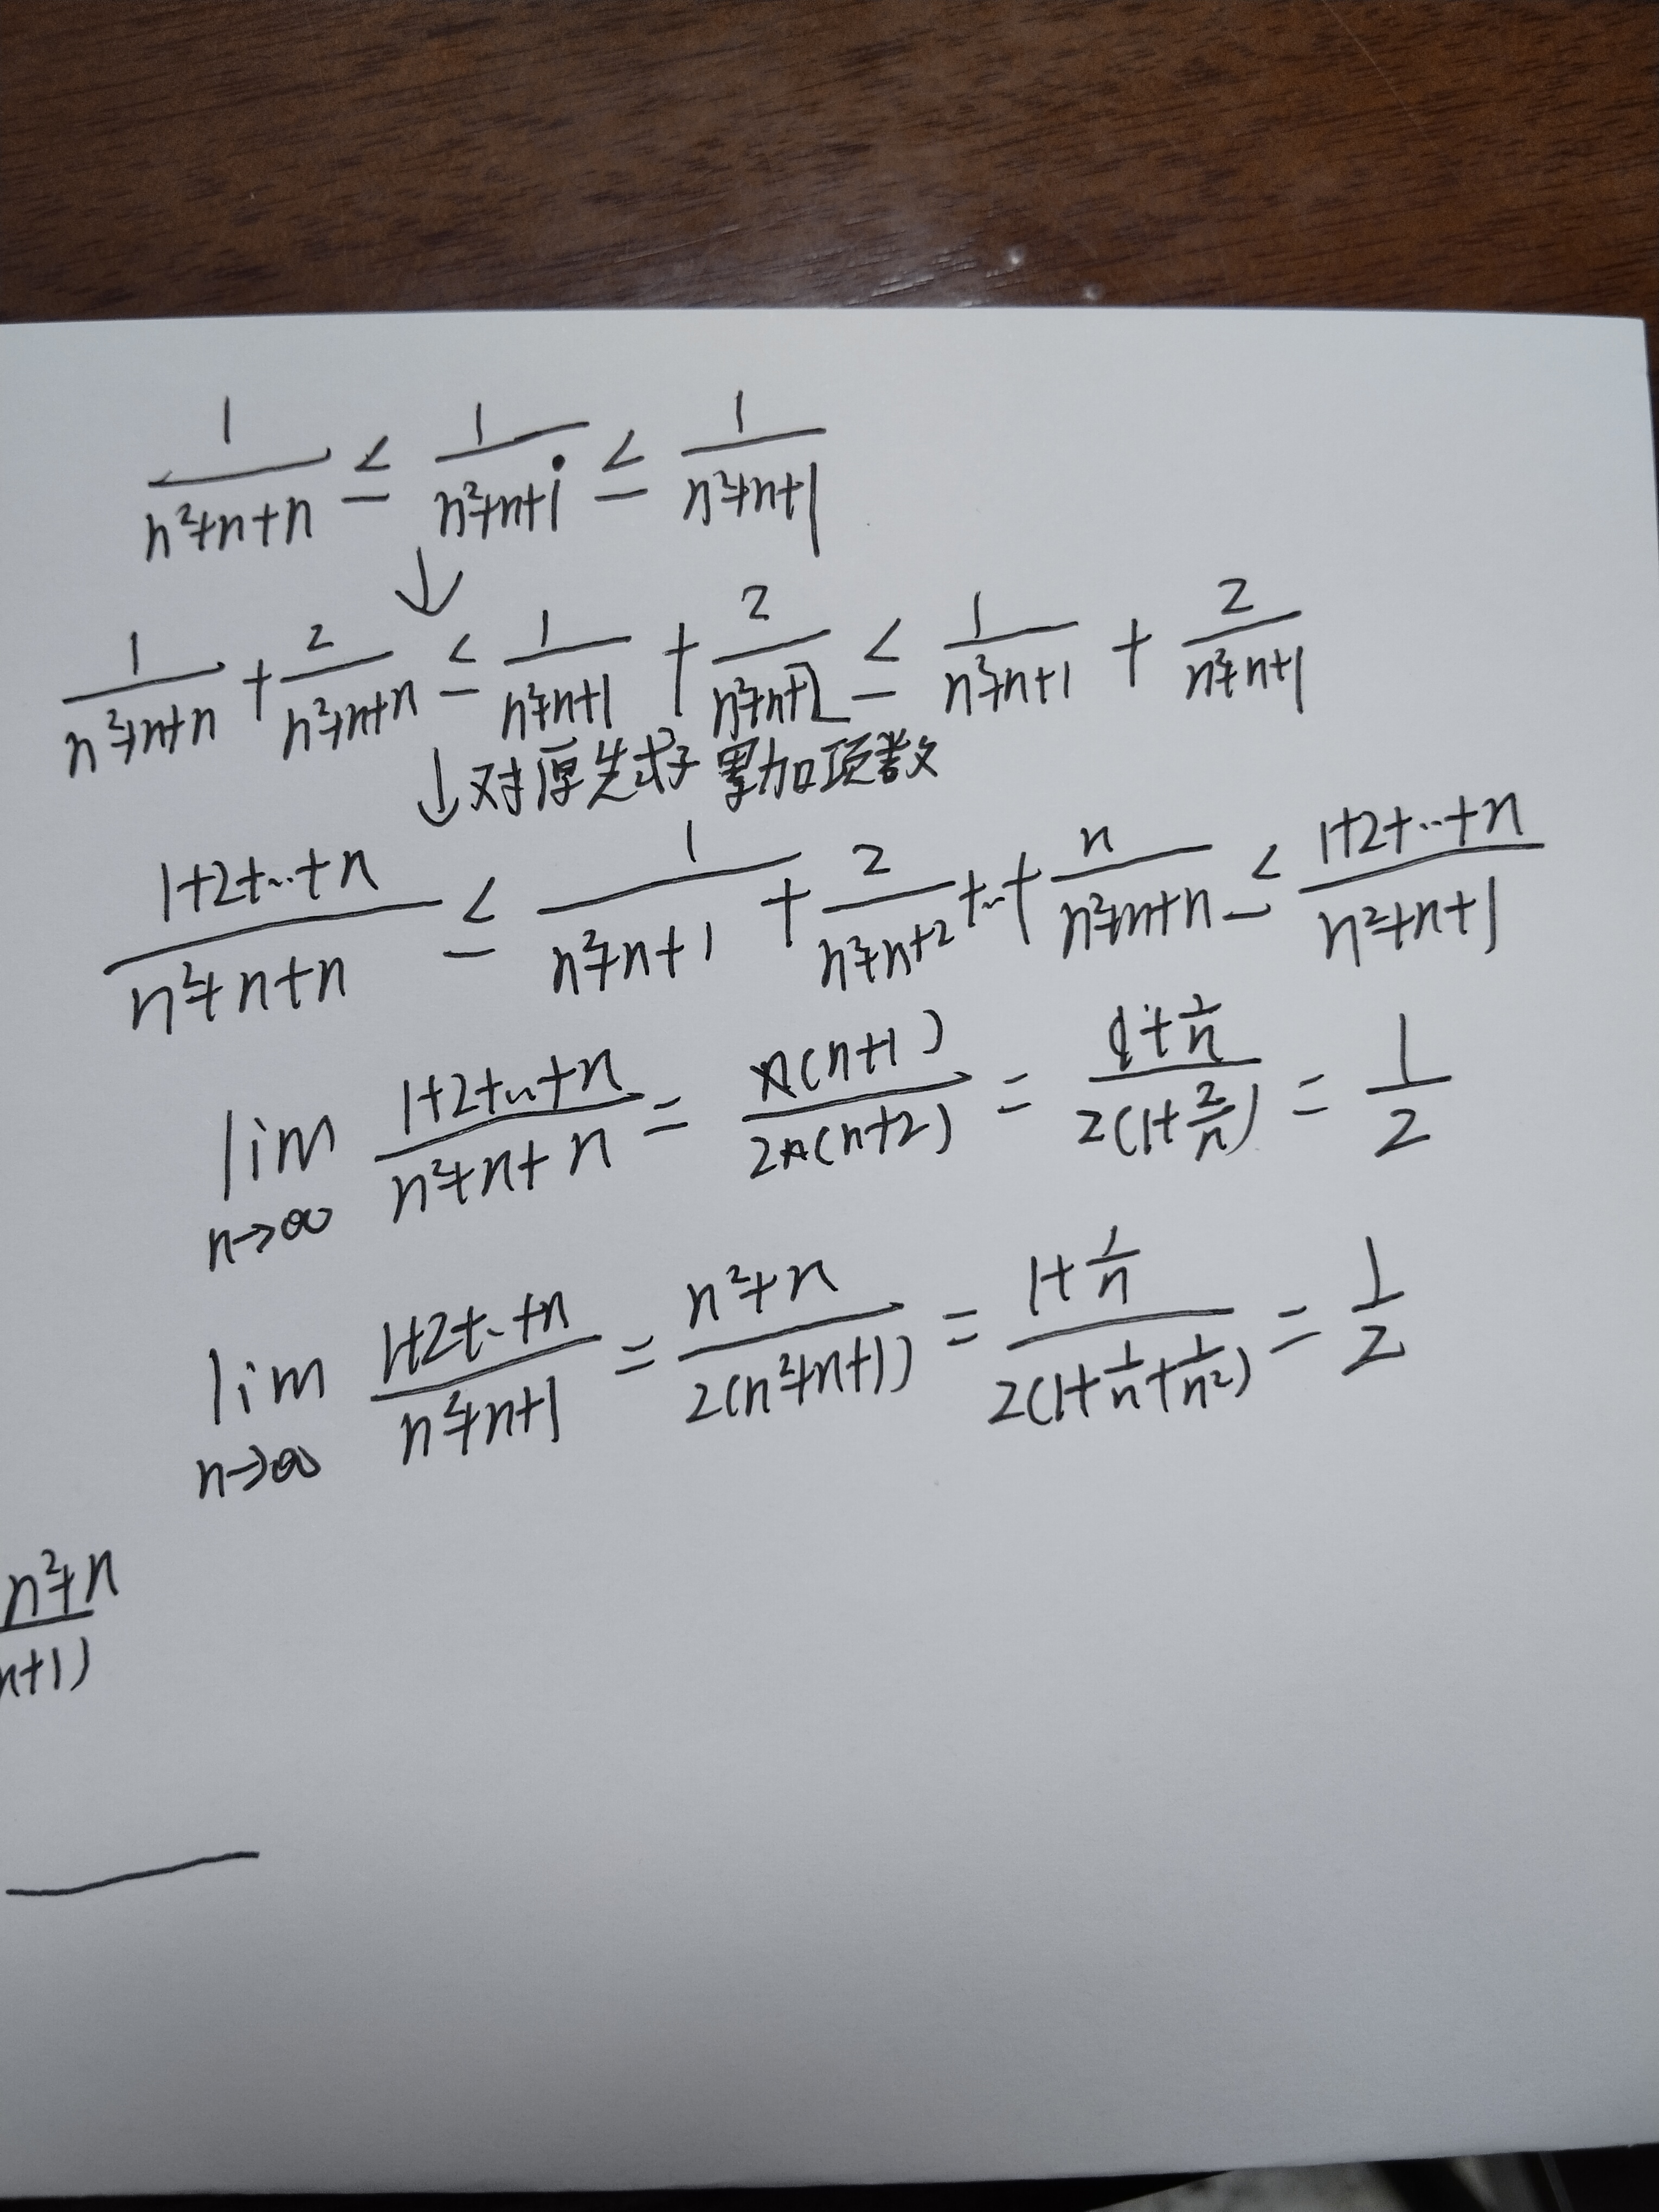 1/(n²+n+n) ≤ 1/(n²+n+i) ≤ 1/(n²+n+1)
↓
1/(n²+n+n) + 2/(n²+n+n) ≤ 1/(n²+n+1) + 2/(n²+n+2) ≤ 1/(n²+n+1) + 2/(n²+n+1)
↓对原先式子累加项数
(1+2+...+n)/(n²+n+n) ≤ 1/(n²+n+1) + 2/(n²+n+2) +...+ n/(n²+n+n) ≤ (1+2+...+n)/(n²+n+1)
lim n→∞ (1+2+...+n)/(n²+n+n) = n(n+1)/2n(n+2) = (1+1/n)/2(1+2/n) = 1/2
lim n→∞ (1+2+...+n)/(n²+n+1) = (n²+n)/2(n²+n+1) = (1+1/n)/2(1+1/n+1/n²) = 1/2
n²+n
n+1)